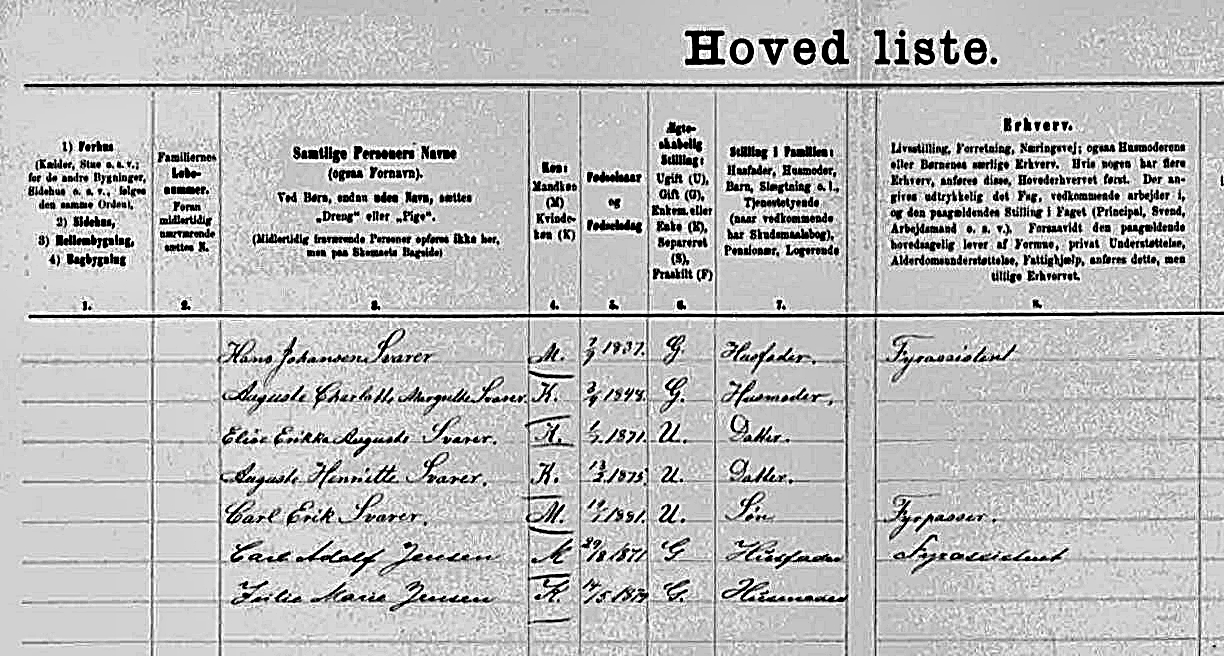 Hoved liste.
1) Forhus
(Kælder, Stue o. s. v.;
for de andre Bygninger,
Sidehus o. s. v., følges
den samme Orden),
2) Sidehus,
3) Mellembygning,
4) Bagbygning
1.
Familiernes
Løbe-
nummer.
Foran
midlertidig
nærværende
sættes N.
2.
Samtlige Personers Navne
(ogsaa Fornavn).
Ved Børn, endnu uden Navn, sættes
„Dreng“ eller „Pige“.
(Midlertidig fraværende Personer opføres ikke her,
men paa Skemaets Bagside)
3.
Køn:
Mandkøn
(M)
Kvinde-
køn (K)
4.
Fødselsaar
og
Fødselsdag
5.
Ægte-
skabelig
Stilling:
Ugift (U),
Gift (G),
Enkem. eller
Enke (E),
Separeret
(S),
Fraskilt (F)
6.
Stilling i Familien:
Husfader, Husmoder,
Barn, Slægtning o. l.,
Tjenestetyende
(naar vedkommende
har Skudsmaalsbog),
Pensionær, Logerende
7.
Erhverv.
Livsstilling, Forretning, Næringsvej; ogsaa Husmoderens
eller Børnenes særlige Erhverv. Hvis nogen har flere
Erhverv, anføres disse, Hovederhvervet først. Der an-
gives udtrykkelig det Fag, vedkommende arbejder i,
og den paagældendes Stilling i Faget (Principal, Svend,
Arbejdsmand o. s. v.). Forsaavidt den paagældende
hovedsagelig lever af Formue, privat Understøttelse,
Alderdomsunderstøttelse, Fattighjælp, anføres dette, men
tillige Erhvervet.
8.
Hans Johansen Svarer M. 1837. G. Husfader. Fyrassistent
Auguste Charlotte Margrethe Svarer. K. 1848. G. Husmoder.
Elise Erikka Auguste Svarer. K. 1871. U. Datter.
Auguste Henriette Svarer. K. 1875. U. Datter.
Carl Erik Svarer. M. 1881. U. Søn Fyrpasser.
Carl Adolf Jensen M 29/8 1871 G Husfader Fyrassistent
Julie Marie Jensen K. 14/5 1879 G. Husmoder